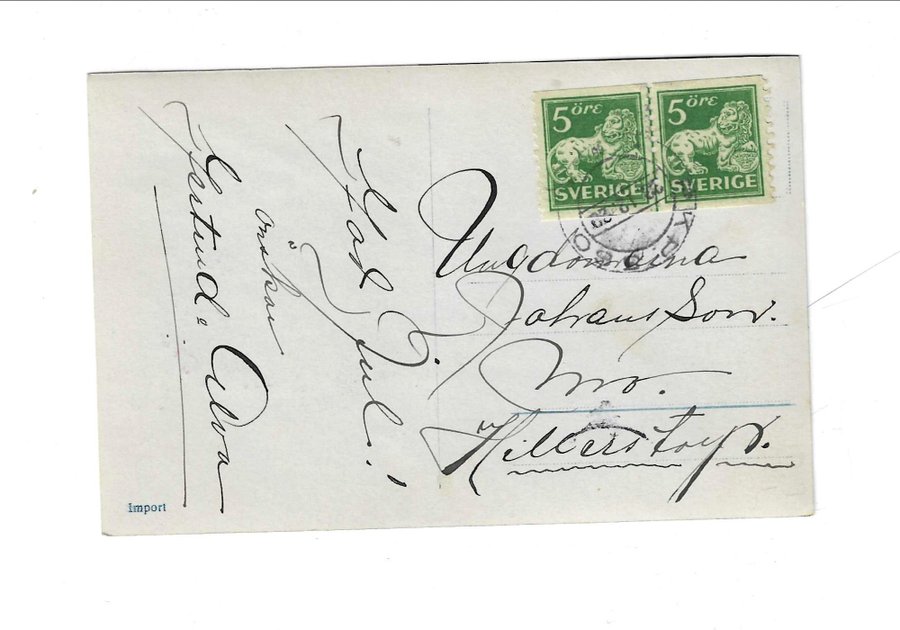 God Jul!
önskar
Gertrud o Alva
Import
5 öre
SVERIGE
5 öre
SVERIGE
Ungdomarna
Johansson.
Mo.
Hillerstorp.